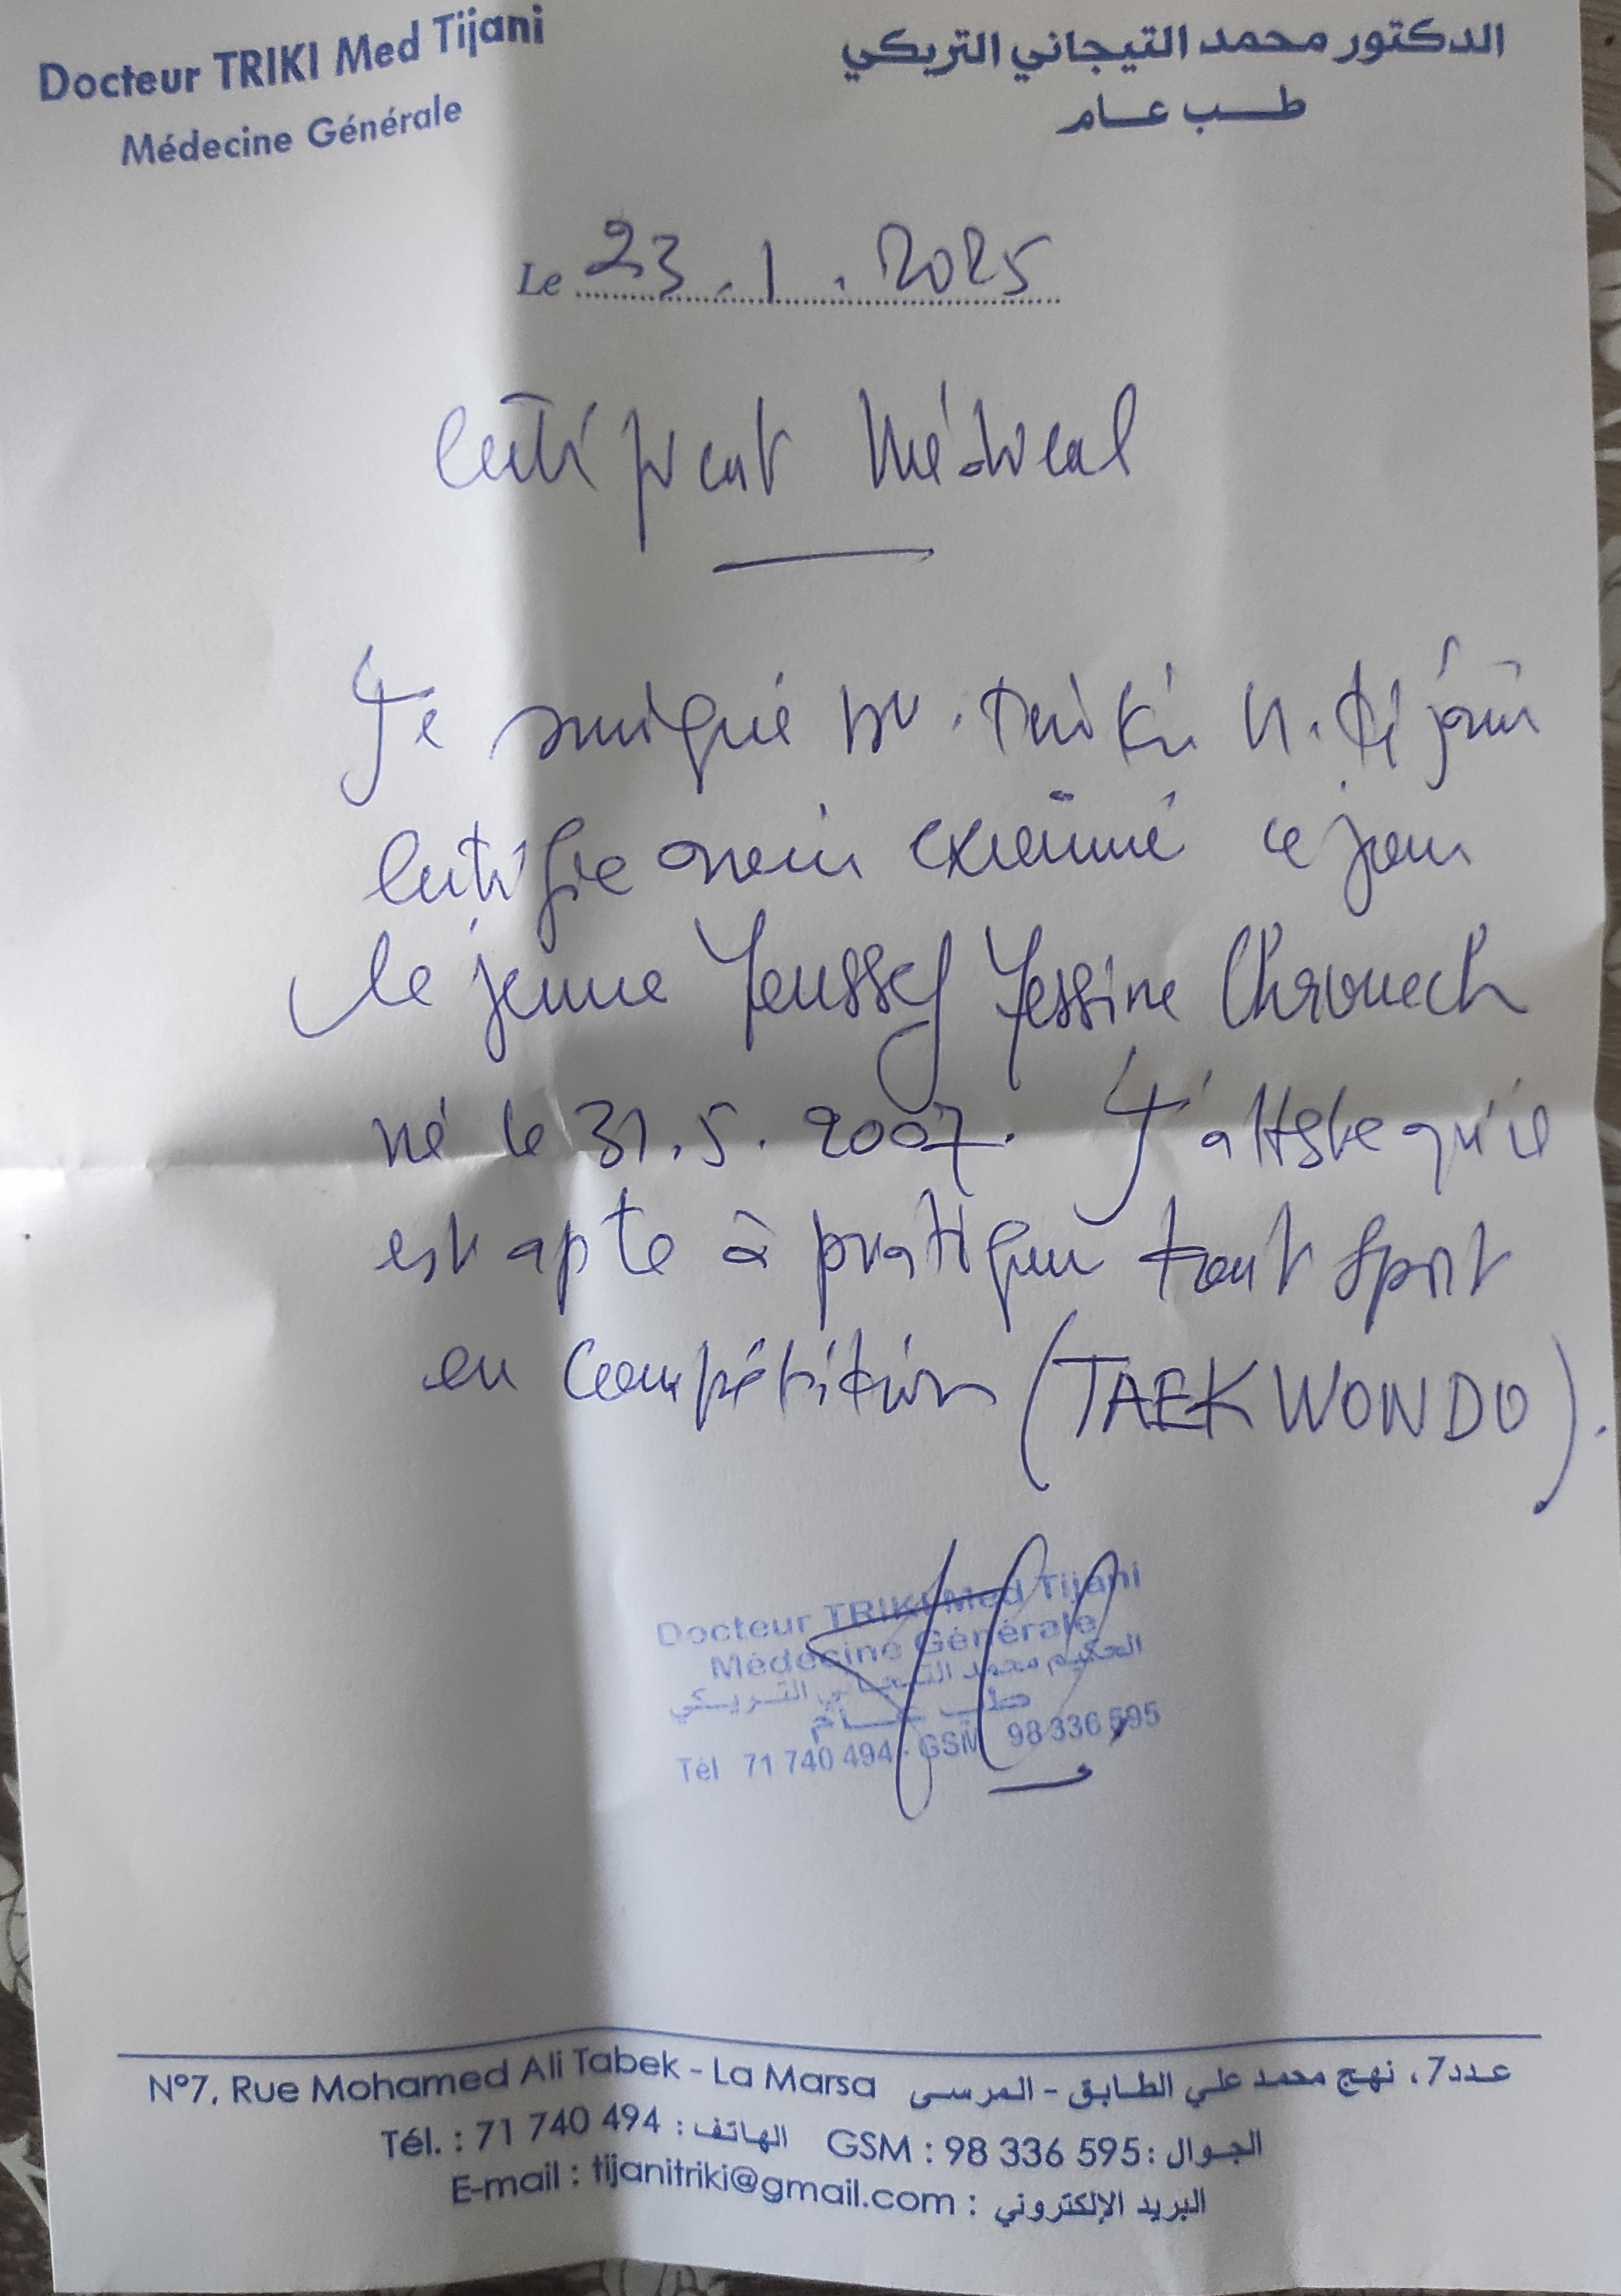 Docteur TRIKI Med Tijani
Médecine Générale
الدكتور محمد التيجاني التريكي
طب عام
Le 23.1.2025
Certificat Médical
Je soussigné Dr. Triki M. Tijani
certifie avoir examiné ce jour
le jeune Youssef Yessine Chrouech
né le 31.5.2007. J'atteste qu'il
est apte à pratiquer tout sport
en compétition (TAEKWONDO).
Docteur TRIKI Med Tijani
Médecine Générale
الحكيم محمد التيجاني التريكي
طب عام
Tél 71 740 494 - GSM 98 336 595
N°7, Rue Mohamed Ali Tabek - La Marsa عدد7، نهج محمد علي الطابق - المرسى
Tél. : 71 740 494 : الهاتف GSM : 98 336 595 : الجوال
E-mail : tijanitriki@gmail.com : البريد الإلكتروني